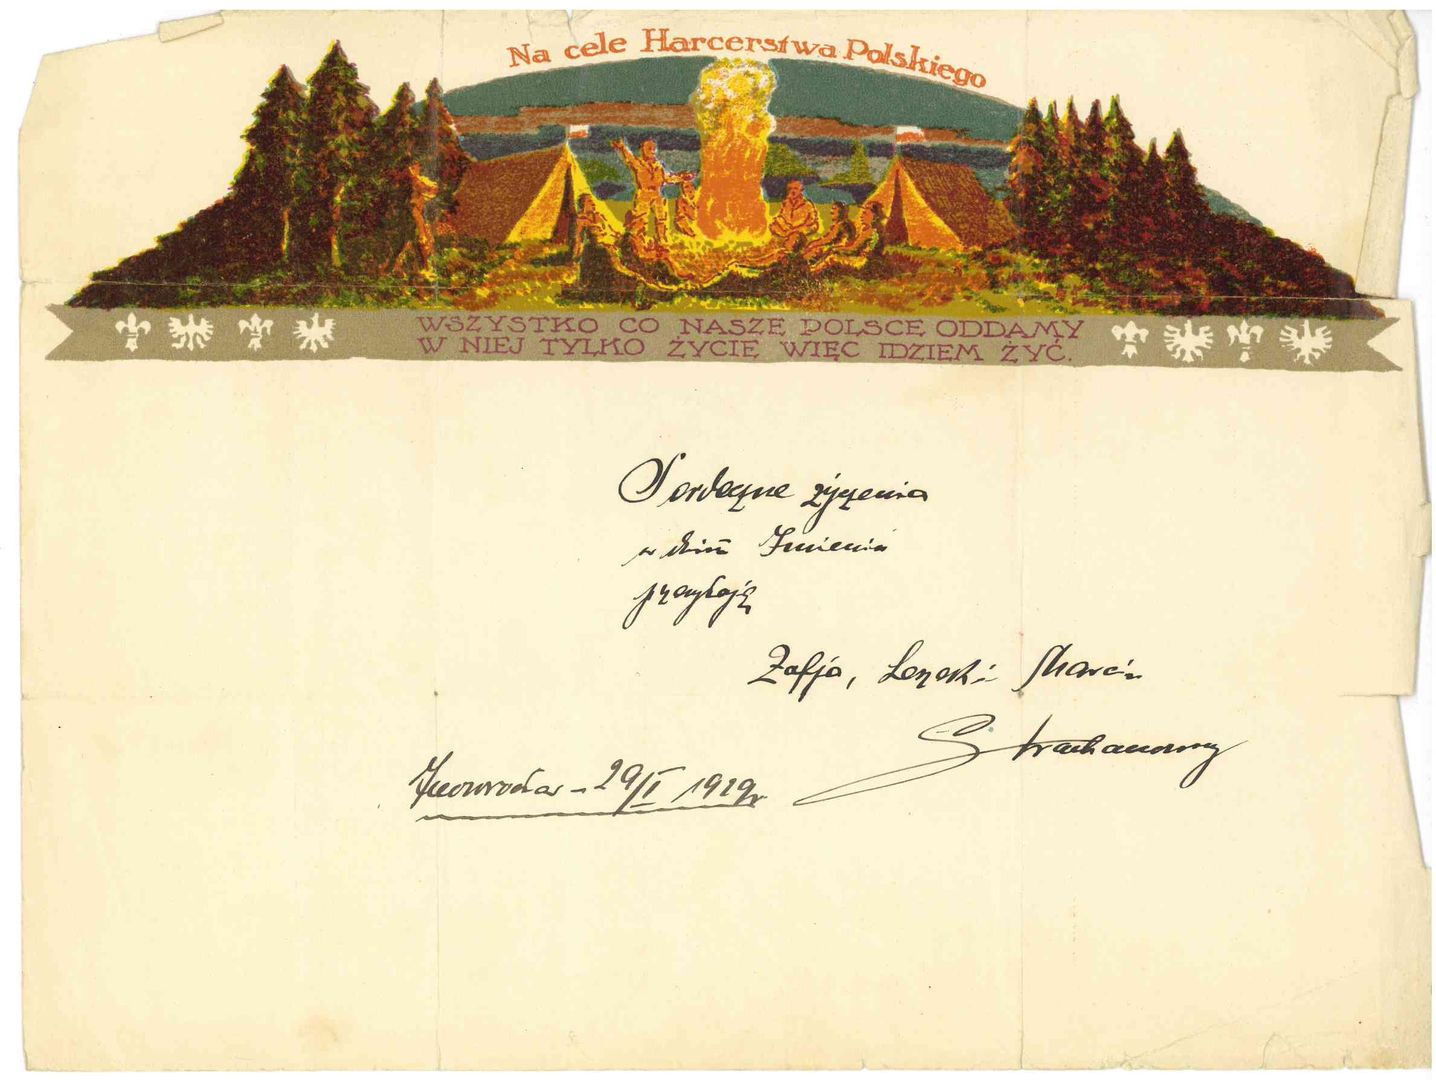 Na cele Harcerstwa Polskiego
WSZYSTKO CO NASZE POLSCE ODDAMY
W NIEJ TYLKO ŻYCIE WIĘC IDZIEM ŻYĆ.
Serdeczne życzenia
w dniu Imienia
przesyłają
Zofja, Leszek i Marcin
Strachanowscy
Inowrocław - 29/I 1929r